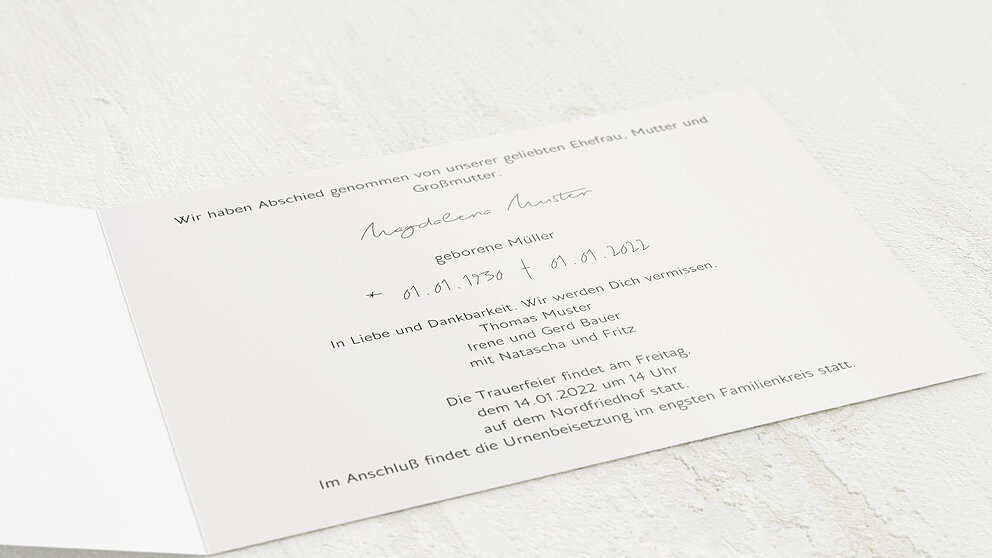 Wir haben Abschied genommen von unserer geliebten Ehefrau, Mutter und
Großmutter.
Magdalena Muster
geborene Müller
* 01.01.1930 † 01.01.2022
In Liebe und Dankbarkeit. Wir werden Dich vermissen.
Thomas Muster
Irene und Gerd Bauer
mit Natascha und Fritz
Die Trauerfeier findet am Freitag,
dem 14.01.2022 um 14 Uhr
auf dem Nordfriedhof statt.
Im Anschluß findet die Urnenbeisetzung im engsten Familienkreis statt.